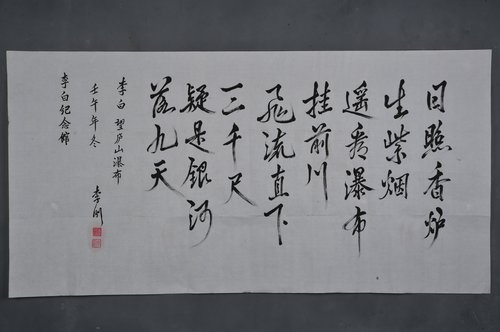 日照香炉
生紫烟
遥看瀑布
挂前川
飞流直下
三千尺
疑是银河
落九天
李白 望庐山瀑布
壬午年冬 李刚
李白纪念馆